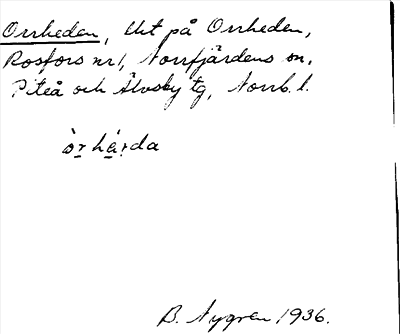 Orrheden, tht på Orrheden,
Rosfors nr 1, Norrfjärdens sn,
Piteå och Älvsby tg, Norrb. l.
òrhá̀rda
B. Nygren 1936.